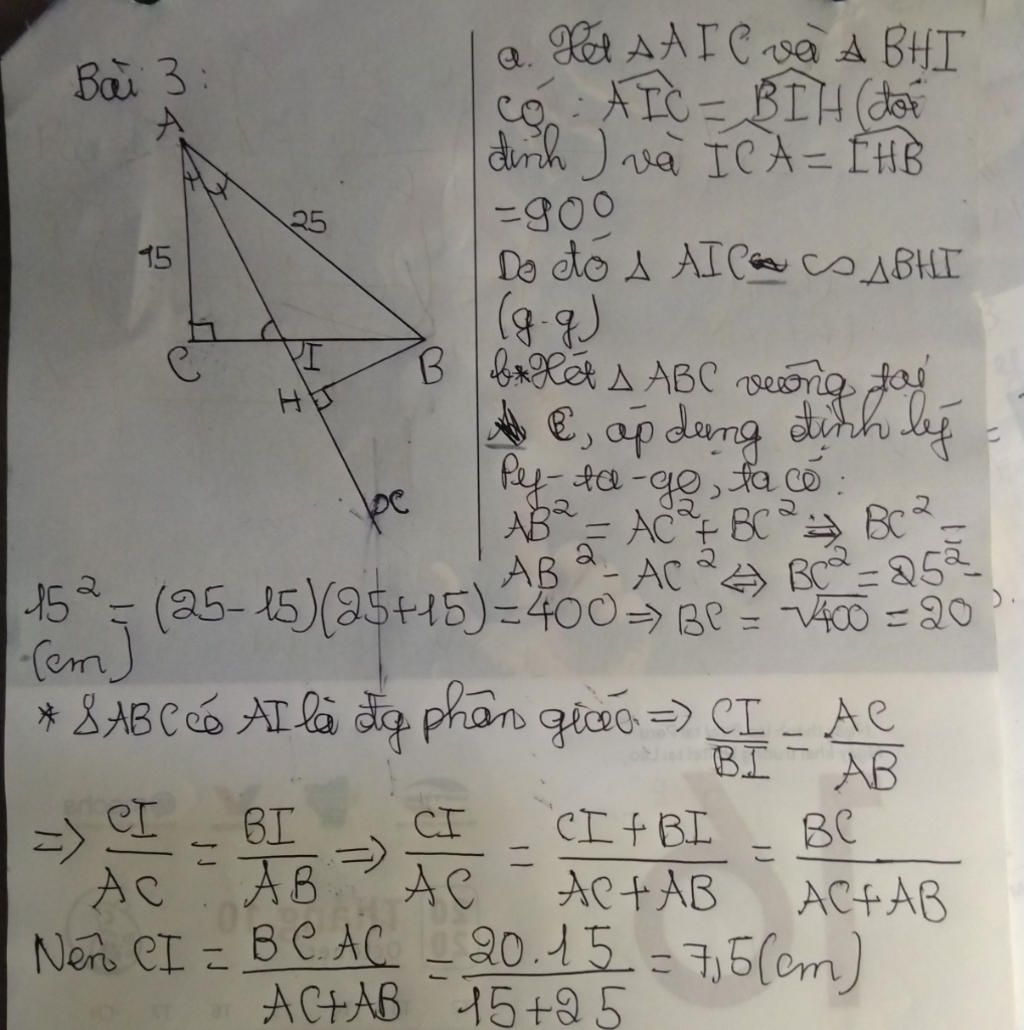 Bài 3:
A
25
15
C
I
B
H
x
a. Xét △AIC và △BHI
có: AIC = BIH (đối
đỉnh) và ICA = IHB
= 90°
Do đó △ AIC ∽ △BHI
(g-g)
b* Xét △ ABC vuông tại
C, áp dụng định lý
Py-ta-go, ta có:
AB² = AC² + BC² ⇒ BC² =
AB² - AC² ⇔ BC² = 25² -
15² = (25-15)(25+15) = 400 ⇒ BC = √400 = 20
(cm)
* △ABC có AI là đg phân giác ⇒ CI/BI = AC/AB
⇒ CI/AC = BI/AB ⇒ CI/AC = CI + BI/AC + AB = BC/AC + AB
Nên CI = BC.AC/AC+AB = 20.15/15+25 = 7,5(cm)